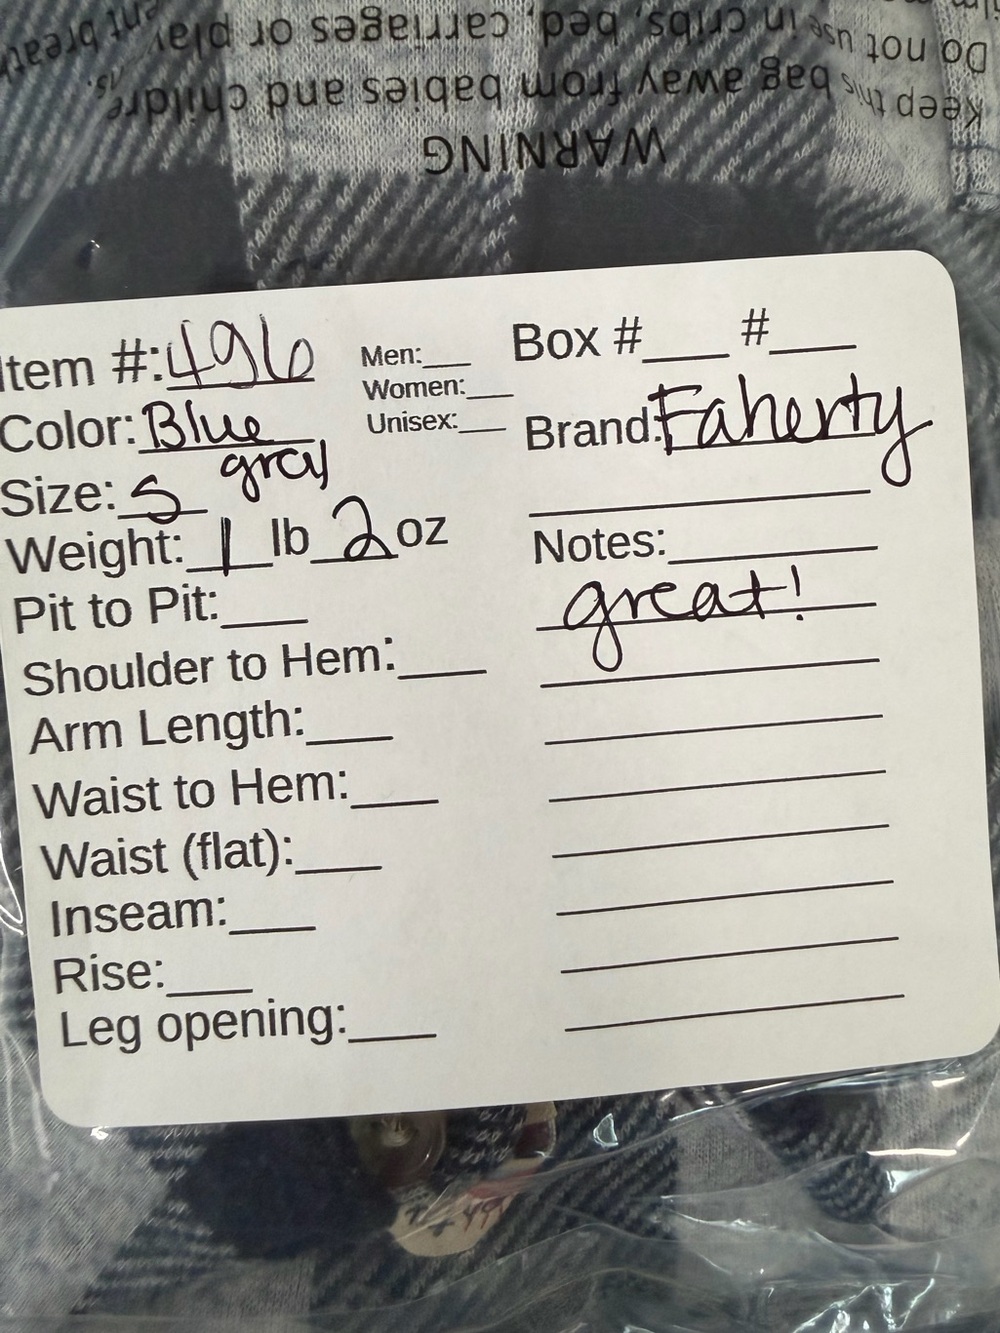 Do not use in cribs, bed, carriages or play
Keep this bag away from babies and childre
WARNING
Item #: 496
Men:___
Women:___
Unisex:___
Box #___ #___
Color: Blue
gray
Brand: Faherty
Size: S
Weight: 1 lb 2 oz
Notes:
great!
Pit to Pit:___
Shoulder to Hem:___
Arm Length:___
Waist to Hem:___
Waist (flat):___
Inseam:___
Rise:___
Leg opening:___